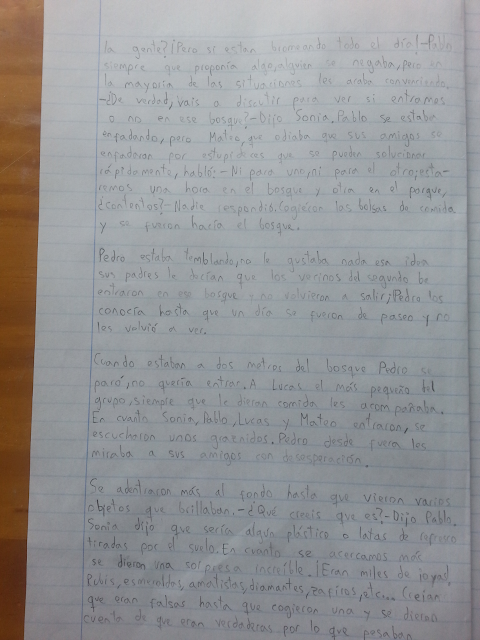 la gente? ¡Pero si estan bromeando todo el día!-Pablo
siempre que proponía algo, alguien se negaba, pero en
la mayoría de las situaciones les acaba convenciendo.
-¿De verdad, vais a discutir para ver si entramos
o no en ese bosque?-Dijo Sonia. Pablo se estaba
enfadando, pero Mateo, que odiaba que sus amigos se
enfadaran por estupideces que se pueden solucionar
rápidamente, habló:-Ni para uno, ni para el otro; esta-
remos una hora en el bosque y otra en el parque,
¿contentos?-Nadie respondió. Cogieron las bolsas de comida
y se fueron hacía el bosque.
Pedro estaba temblando, no le gustaba nada esa idea
sus padres le decían que los vecinos del segundo be
entraron en ese bosque e no volvieron a salir; Pedro los
conocía hasta que un día se fueron de paseo y no
les volvió a ver.
Cuando estaban a dos metros del bosque Pedro se
paró, no quería entrar. A Lucas el más pequeño del
grupo, siempre que le dieran comida les acompañaba.
En cuanto Sonia, Pablo, Lucas y Mateo entraron, se
escucharon unos graznidos. Pedro desde fuera les
miraba a sus amigos con desesperación.
Se adentraron más al fondo hasta que vieron varios
objetos que brillaban.-¿Qué creeis que es?-Dijo Pablo.
Sonia dijo que sería algun plástico o latas de refresco
tiradas por el suelo. En cuanto se acercamos más
se dieron una sorpresa increíble. ¡Eran miles de joyas!
Rubis, esmeraldas, amatistas, diamantes, zafiros, etc... Creían
que eran falsas hasta que cogieron una y se dieron
cuenta de que eran verdaderas por lo que pesaban